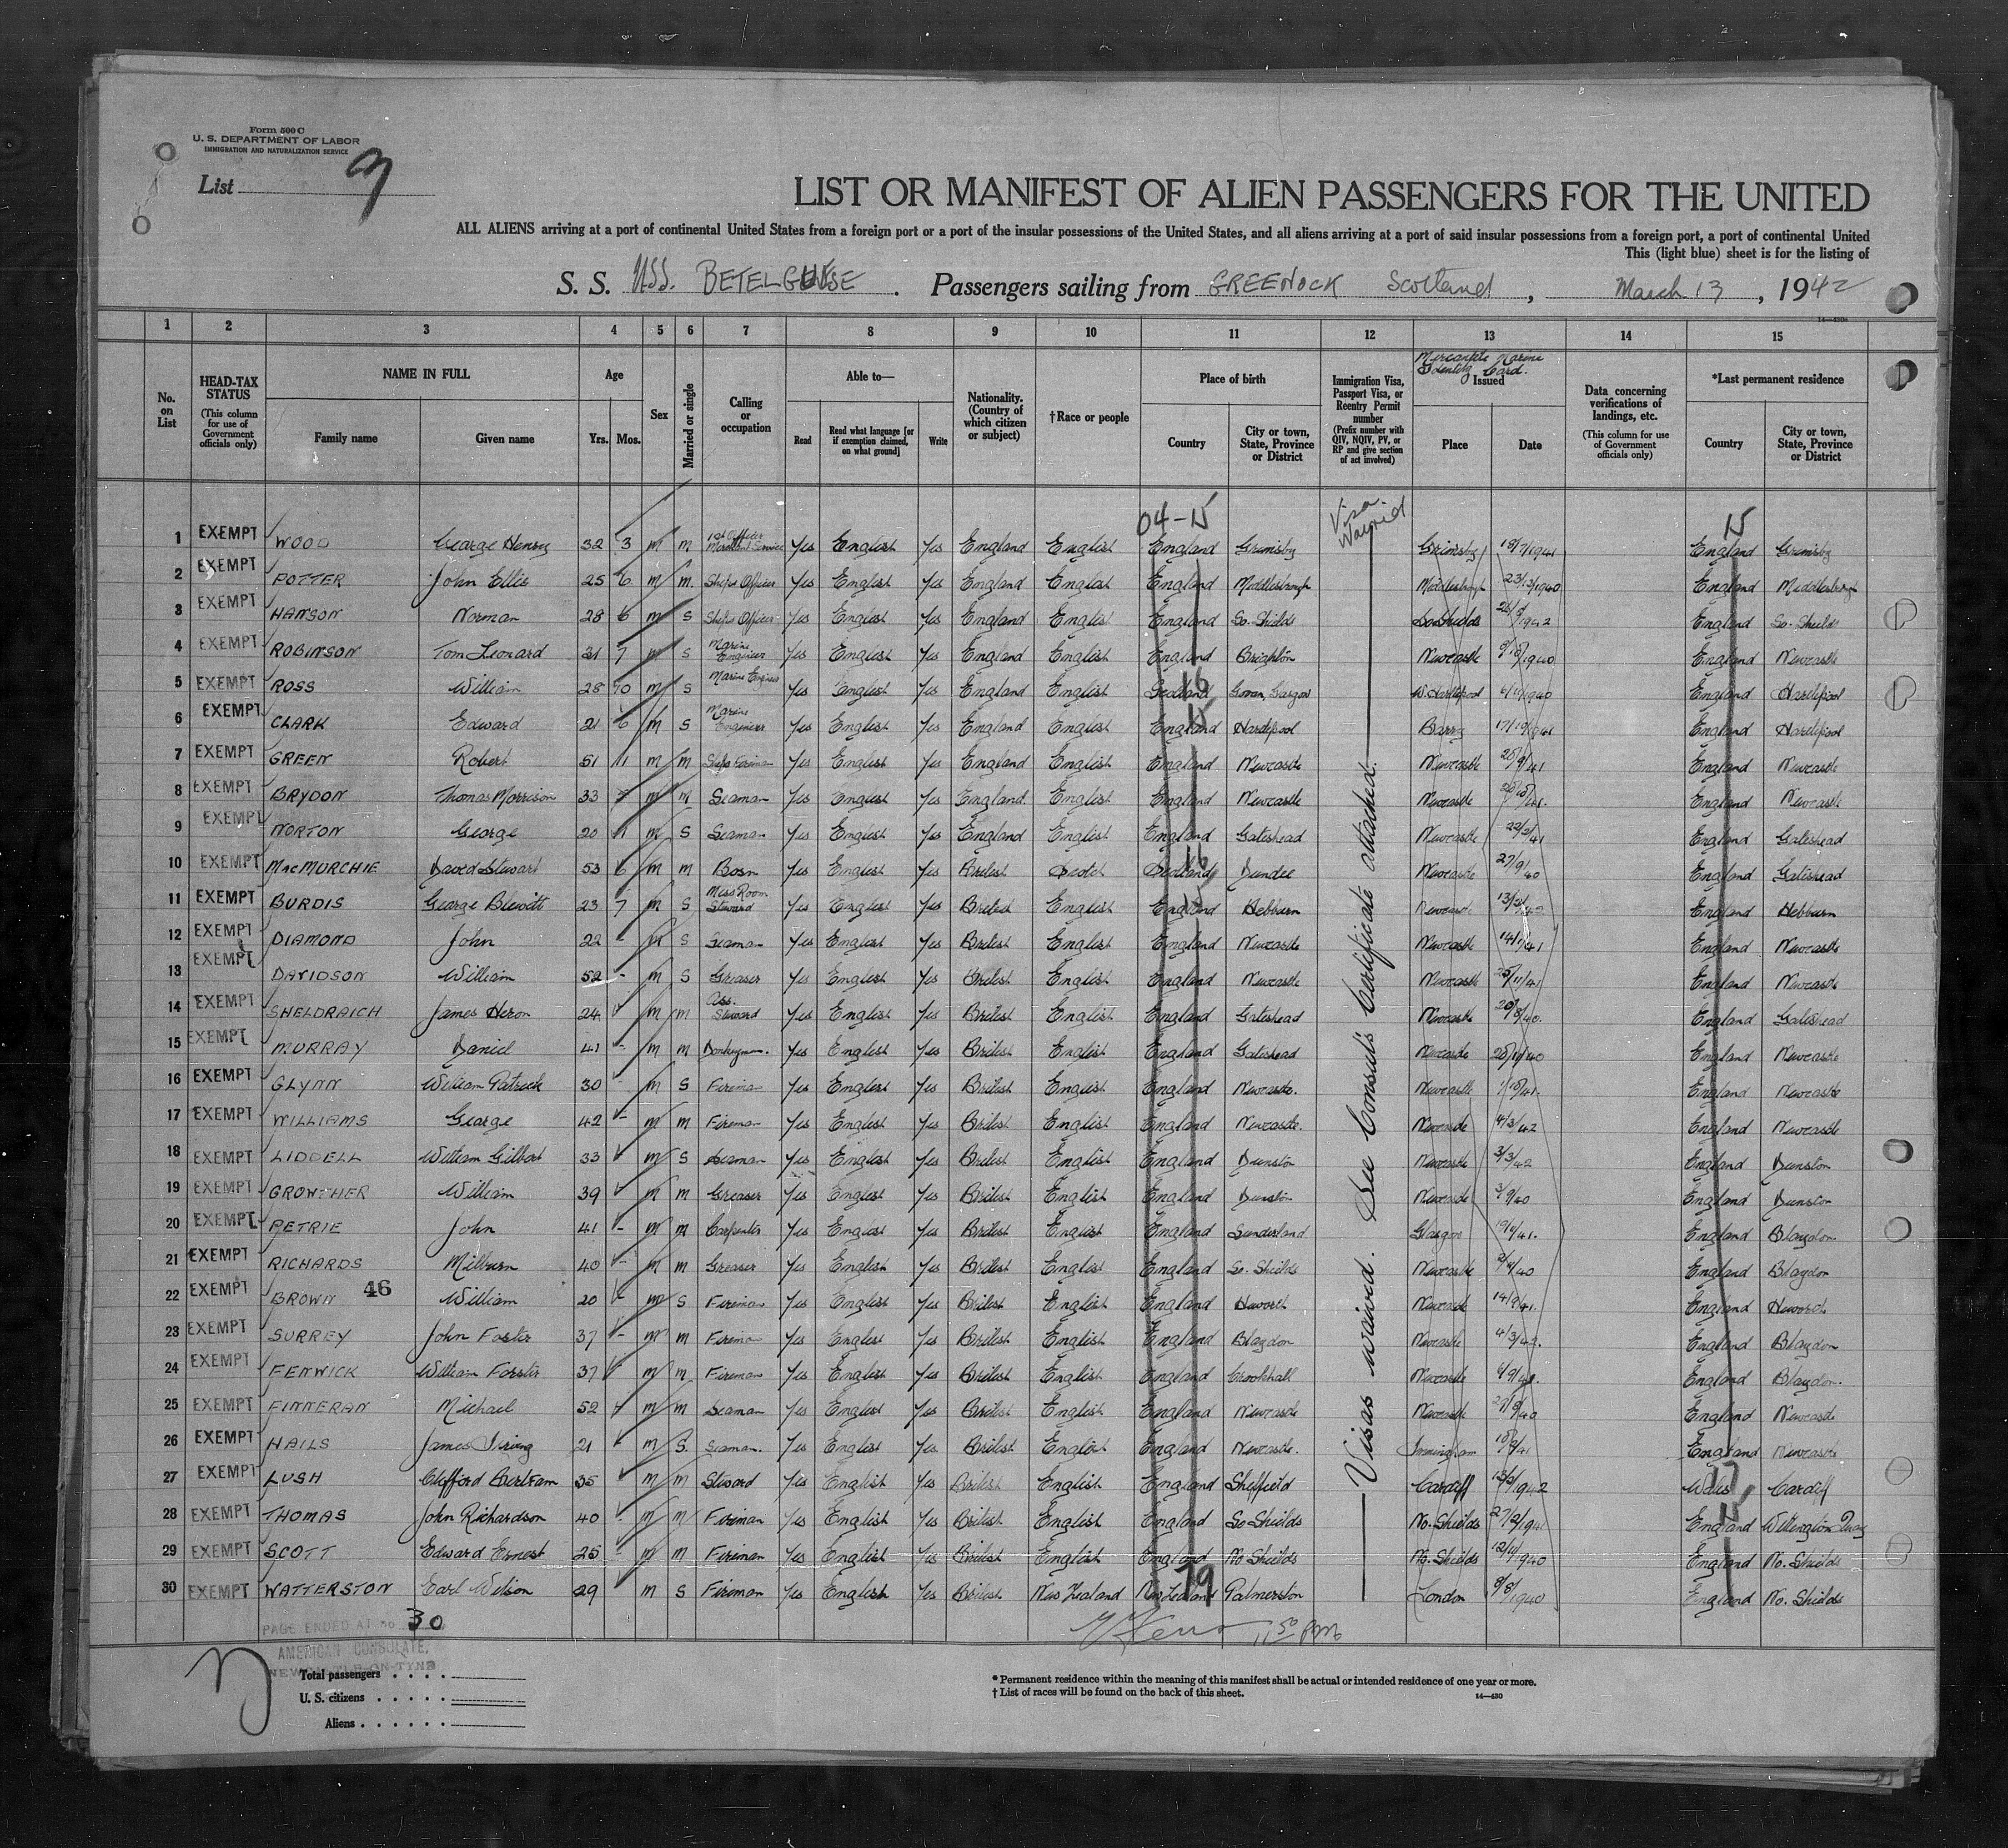 Form 500 C
U. S. DEPARTMENT OF LABOR
IMMIGRATION AND NATURALIZATION SERVICE
List 9
LIST OR MANIFEST OF ALIEN PASSENGERS FOR THE UNITED
ALL ALIENS arriving at a port of continental United States from a foreign port or a port of the insular possessions of the United States, and all aliens arriving at a port of said insular possessions from a foreign port, a port of continental United
This (light blue) sheet is for the listing of
S. S. USS. BETELGUESE . Passengers sailing from GREENOCK Scotland , March 13 , 1942
1 2 3 4 5 6 7 8 9 10 11 12 13 14 15
No. on List
HEAD-TAX STATUS (This column for use of Government officials only)
NAME IN FULL Family name Given name
Age Yrs. Mos.
Sex
Married or single
Calling or occupation
Able to— Read Read what language [or if exemption claimed, on what ground] Write
Nationality. (Country of which citizen or subject)
†Race or people
Place of birth Country City or town, State, Province or District
Immigration Visa, Passport Visa, or Reentry Permit number (Prefix number with QIV, NQIV, PV, or RP and give section of act involved)
Mercantile Marine Identity Card. Issued Place Date
Data concerning verifications of landings, etc. (This column for use of Government officials only)
*Last permanent residence Country City or town, State, Province or District
04-15 Visa Waived 15
1 EXEMPT WOOD George Henry 32 3 m m 1st Officer Merchant Service Yes English Yes England English England Grimsby Grimsby 18/7/1941 England Grimsby
2 EXEMPT POTTER John Ellis 25 6 m m. Ships Officer Yes English Yes England English England Middlesbrough Middlesbrough England Middlesbrough
3 EXEMPT HANSON Norman 28 6 m S Ships Officer Yes English Yes England English England So. Shields So. Shields England So. Shields
4 EXEMPT ROBINSON Tom Leonard 31 7 m S Marine Engineer Yes English Yes England English England Brighton Newcastle England Newcastle
5 EXEMPT ROSS William 28 10 m S Marine Engineer Yes English Yes England English Scotland Govan, Glasgow W. Hartlepool England Hartlepool
6 EXEMPT CLARK Edward 21 6 m S Marine Engineer Yes English Yes England English England Hartlepool Barry England Hartlepool
7 EXEMPT GREEN Robert 51 11 m m Ships Fireman Yes English Yes England English England Newcastle Newcastle England Newcastle
8 EXEMPT BRYDON Thomas Morrison 33 m m Seaman Yes English Yes England. English England Newcastle Newcastle England Newcastle
9 EXEMPT NORTON George 20 11 m S Seaman Yes English Yes England English England Gateshead Newcastle England Gateshead
10 EXEMPT MacMURCHIE David Stewart 53 6 m m Bosn Yes English Yes British Scotch Scotland Dundee Newcastle 27/9/40 England Gateshead
11 EXEMPT BURDIS George Blewitt 23 7 m S Mess Room Steward Yes English Yes British English England Hebburn Newcastle England Hebburn
12 EXEMPT DIAMOND John 22 - m S Seaman Yes English Yes British English England Newcastle Newcastle England Newcastle
13 EXEMPT DAVIDSON William 52 - m S Greaser Yes English Yes British English England Newcastle Newcastle 25/11/41 England Newcastle
14 EXEMPT SHELDRAICH James Heron 24 m m Ass. Steward Yes English Yes British English England Gateshead Newcastle England Gateshead
15 EXEMPT MURRAY Daniel 41 - m m Donkeyman. Yes English Yes British English England Gateshead Newcastle England Newcastle
16 EXEMPT GLYNN William Patrick 30 - m S Fireman Yes English Yes British English England Newcastle. Newcastle England Newcastle
17 EXEMPT WILLIAMS George 42 - m m Fireman Yes English Yes British English England Newcastle. Newcastle 4/3/42 England Newcastle
18 EXEMPT LIDDELL William Gilbert 33 m S Seaman Yes English Yes British English England Dunston Newcastle 3/3/42 England Dunston
19 EXEMPT GROWTHER William 39 m m Greaser Yes English Yes British English England Dunston Newcastle 3/9/40 England Dunston
20 EXEMPT PETRIE John 41 - m m Carpenter Yes English Yes British English England Sunderland Glasgow England Blaydon
21 EXEMPT RICHARDS Milburn 40 - m m Greaser Yes English Yes British English England So. Shields Newcastle England Blaydon
22 EXEMPT BROWN 46 William 20 m S Fireman Yes English Yes British English England Heworth Newcastle 14/9/41. England Heworth
23 EXEMPT SURREY John Foster 37 - m m Fireman Yes English Yes British English England Blaydon Newcastle 4/3/42. England Blaydon
24 EXEMPT FENWICK William Forster 37 m m Fireman Yes English Yes British English England Crookhall Newcastle England Blaydon.
25 EXEMPT FINNERAN Michael 52 m m Seaman Yes English Yes British English England Newcastle Newcastle England Newcastle
26 EXEMPT HAILS James Irving 21 m S. Seaman. Yes English Yes British English England Newcastle. England Newcastle
27 EXEMPT LUSH Clifford Bertram 35 m m Steward Yes English Yes British English England Sheffield Cardiff Wales Cardiff
28 EXEMPT THOMAS John Richardson 40 - m m Fireman Yes English Yes British English England So Shields No. Shields England Willington Quay
29 EXEMPT SCOTT Edward Ernest 25 - m m Fireman Yes English Yes British English England No Shields No. Shields England No. Shields
30 EXEMPT WATTERSTON Earl Wilson 29 m S Fireman Yes English Yes British New Zealand New Zealand Palmerston London 8/8/1940 England No. Shields
Visas waived. See Consul's Certificate attached.
PAGE ENDED AT No 30
AMERICAN CONSULATE,
NEWCASTLE-ON-TYNE
Total passengers . . . .
U. S. citizens . . . . .
Aliens . . . . . .
* Permanent residence within the meaning of this manifest shall be actual or intended residence of one year or more.
† List of races will be found on the back of this sheet.
14—430